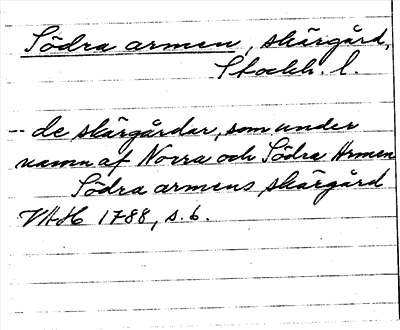 Södra armen, skärgård,
Stockh. l.
-- de skärgårdar, som under
namn af Norra och Södra Armen
Södra armens skärgård
VAH 1788, s. 6.